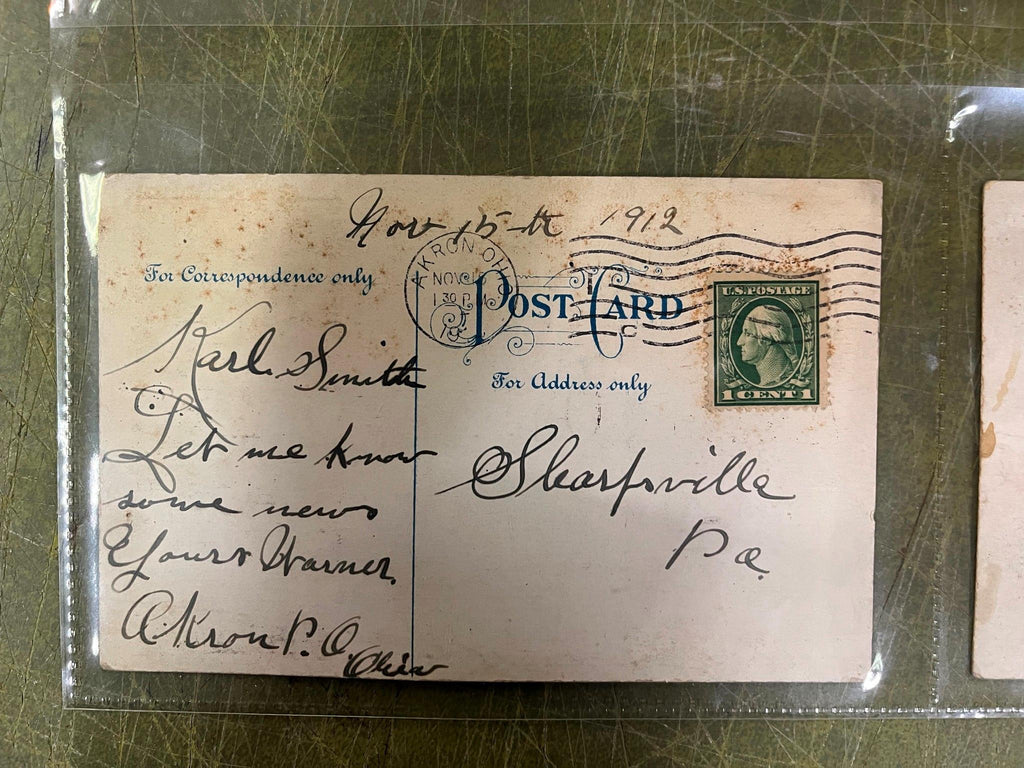 Nov 15th 1912
For Correspondence only
AKRON OH
NOV
1 30 P M
POST CARD
U.S. POSTAGE
1 CENT 1
For Address only
Karl Smith
Let me know
some news
Yours Warner.
Akron P.O.
Ohio
Sharpsville
Pa.